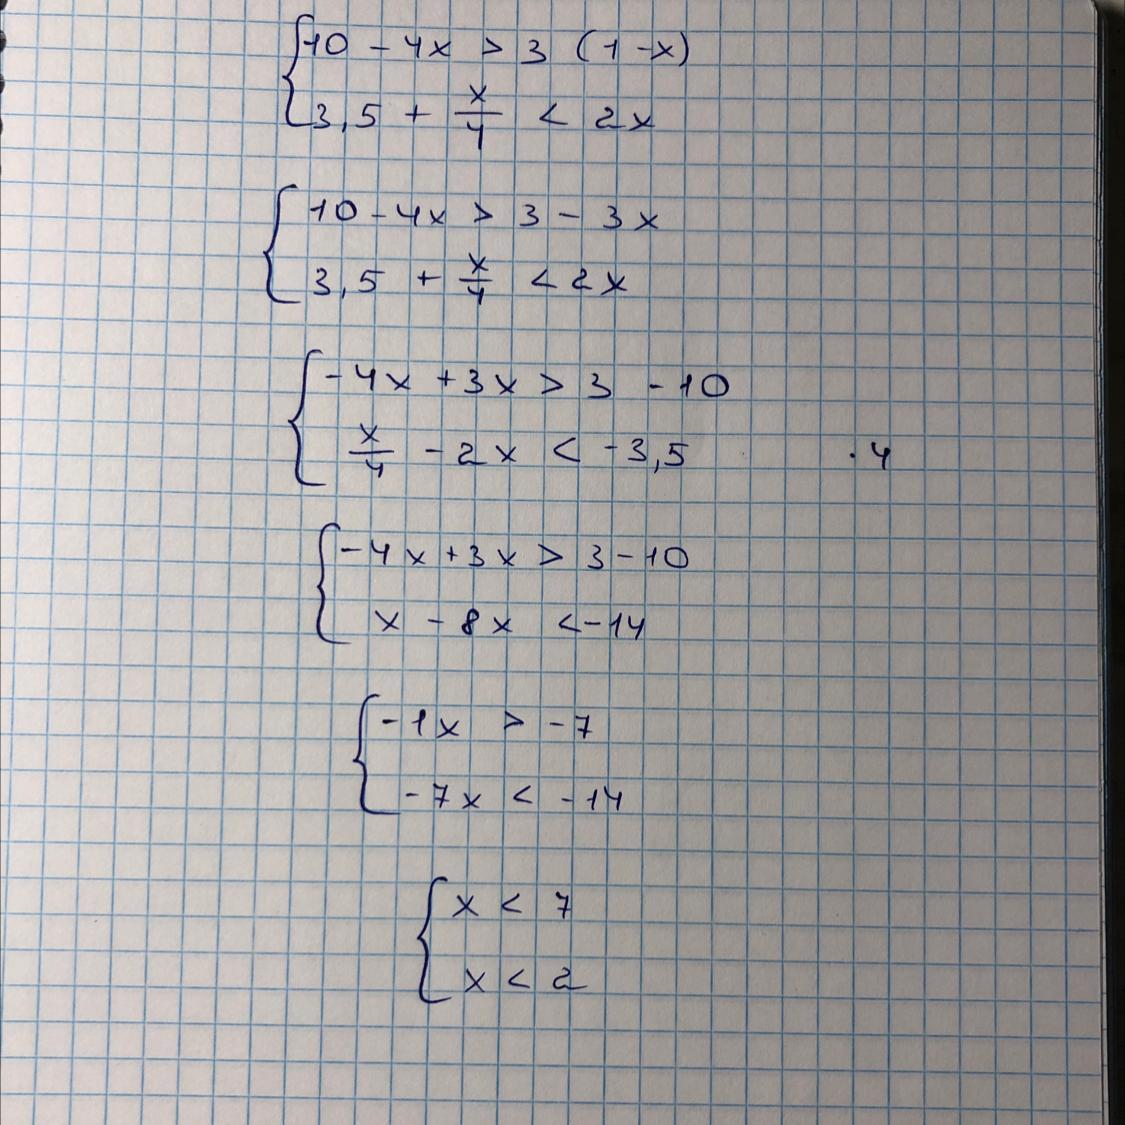 10 - 4x > 3 (1 - x)
3,5 + x/4 < 2x
10 - 4x > 3 - 3x
3,5 + x/4 < 2x
-4x + 3x > 3 - 10
x/4 - 2x < -3,5 · 4
-4x + 3x > 3 - 10
x - 8x < -14
-1x > -7
-7x < -14
x < 7
x < 2